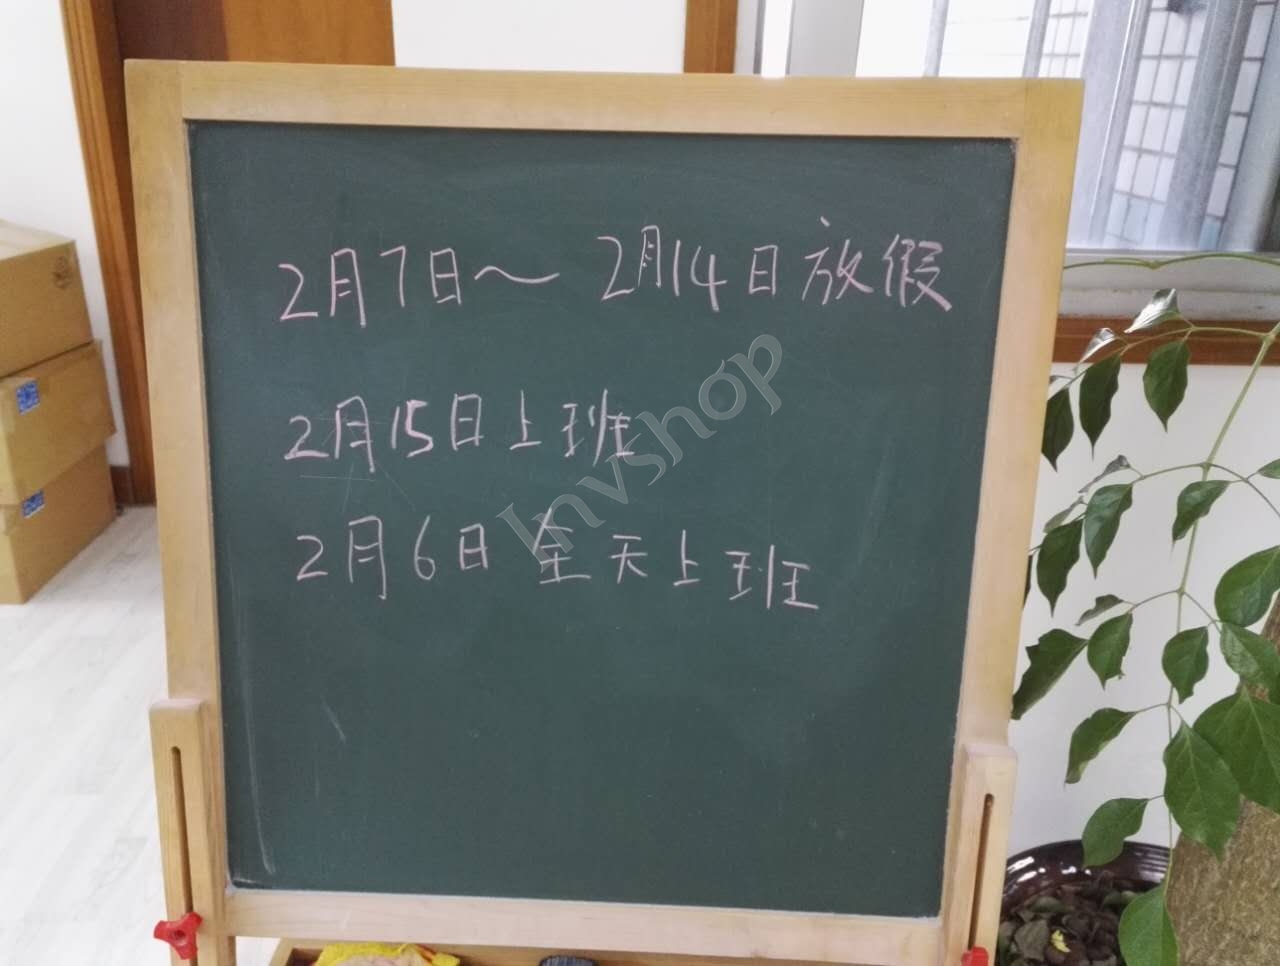 2月7日～2月14日放假
2月15日上班
2月6日全天上班
Invshop